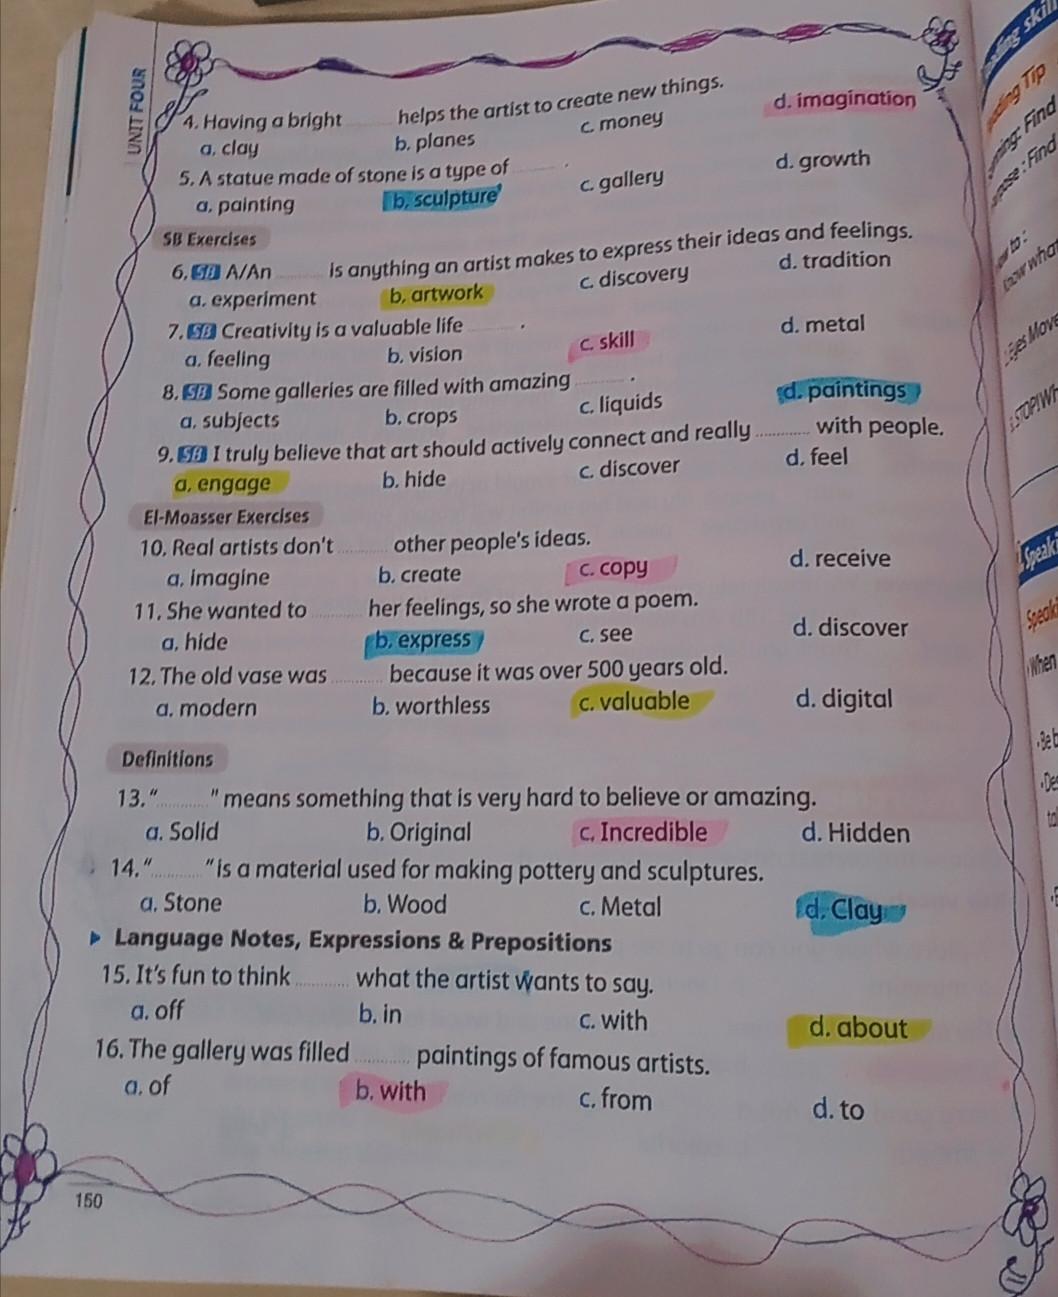 UNIT FOUR
4. Having a bright ........ helps the artist to create new things.
a. clay b. planes c. money d. imagination
5. A statue made of stone is a type of ........ .
a. painting b. sculpture c. gallery d. growth
SB Exercises
6. SB A/An ........ is anything an artist makes to express their ideas and feelings.
a. experiment b. artwork c. discovery d. tradition
7. SB Creativity is a valuable life ........ .
a. feeling b. vision c. skill d. metal
8. SB Some galleries are filled with amazing ........ .
a. subjects b. crops c. liquids d. paintings
9. SB I truly believe that art should actively connect and really ........ with people.
a. engage b. hide c. discover d. feel
El-Moasser Exercises
10. Real artists don't ........ other people's ideas.
a. imagine b. create c. copy d. receive
11. She wanted to ........ her feelings, so she wrote a poem.
a. hide b. express c. see d. discover
12. The old vase was ........ because it was over 500 years old.
a. modern b. worthless c. valuable d. digital
Definitions
13. "........" means something that is very hard to believe or amazing.
a. Solid b. Original c. Incredible d. Hidden
14. "........" is a material used for making pottery and sculptures.
a. Stone b. Wood c. Metal d. Clay
Language Notes, Expressions & Prepositions
15. It's fun to think ........ what the artist wants to say.
a. off b. in c. with d. about
16. The gallery was filled ........ paintings of famous artists.
a. of b. with c. from d. to
150
Tip
Find
: Find
Eyes Move
When